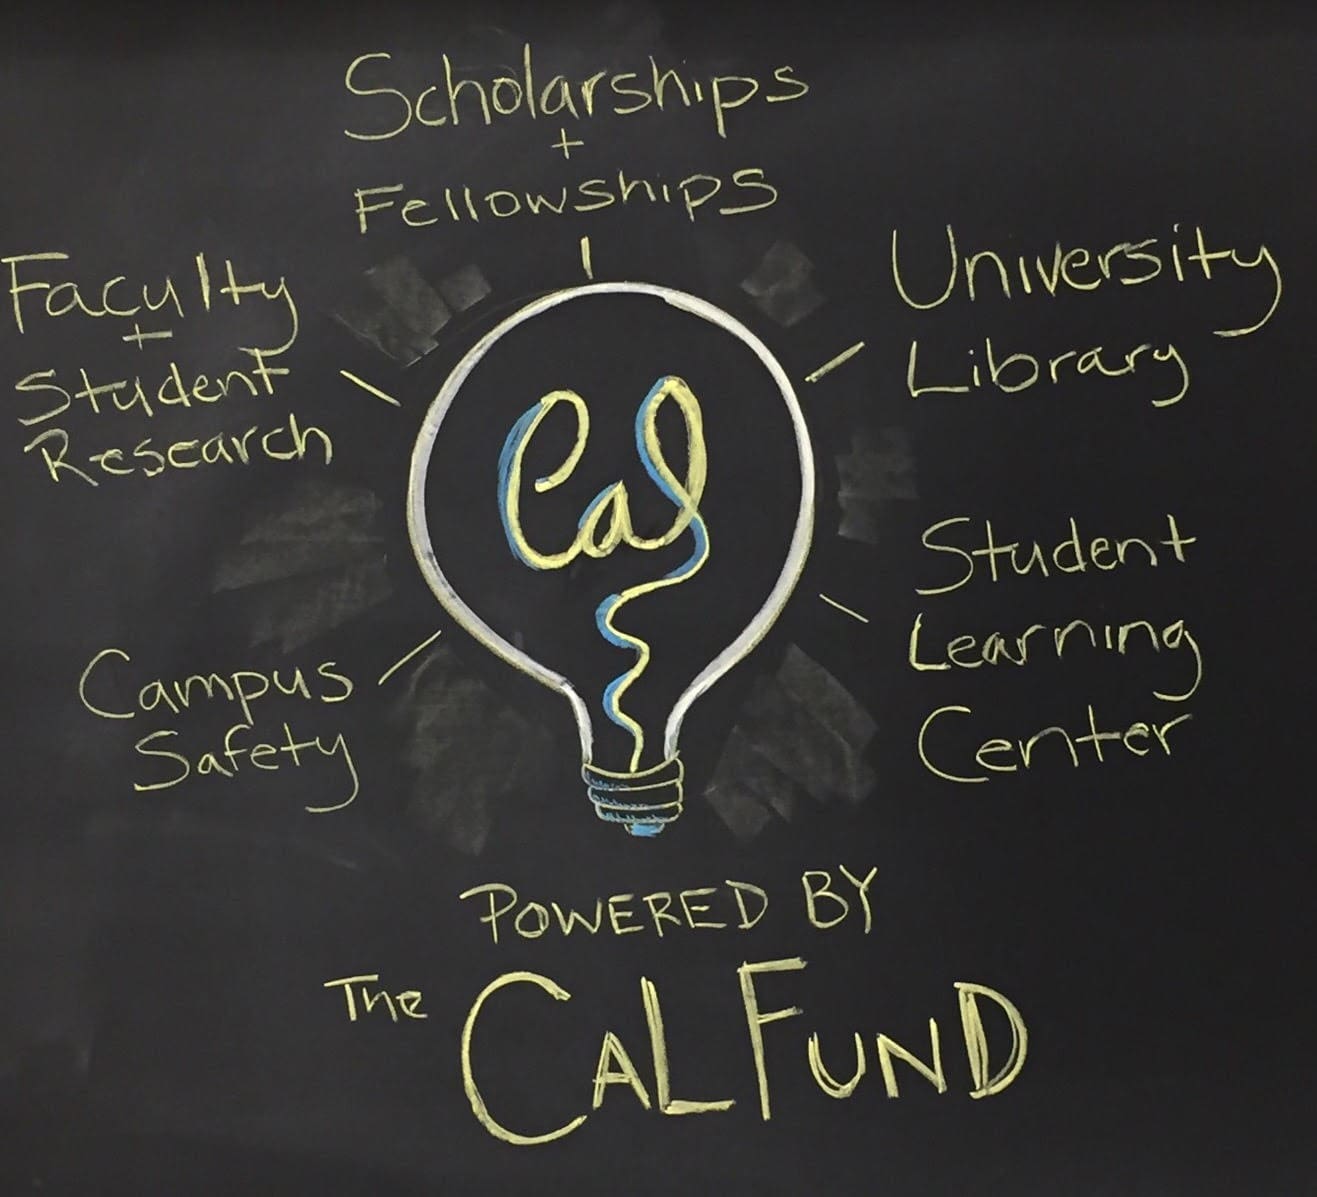 Scholarships
+
Fellowships
Faculty
+
Student
Research
University
Library
Cal
Student
Learning
Center
Campus
Safety
POWERED BY
The CAL FUND